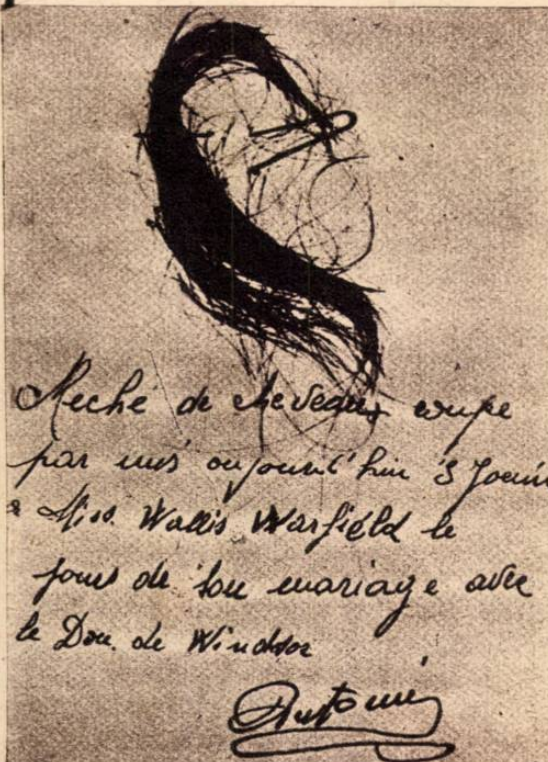 Meche de cheveaux coupe
par moi aujourd'hui 3 Jouin
a Miss. Wallis Warfield le
jour de son mariage avec
le Duc. de Windsor
Antoine